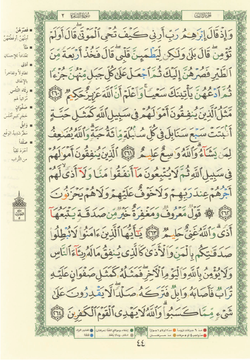 وَإِذْ قَالَ إِبْرَٰهِـۧمُ رَبِّ أَرِنِى كَيْفَ تُحْىِ ٱلْمَوْتَىٰ قَالَ أَوَلَمْ
تُؤْمِن قَالَ بَلَىٰ وَلَـٰكِن لِّيَطْمَئِنَّ قَلْبِى قَالَ فَخُذْ أَرْبَعَةً مِّنَ
ٱلطَّيْرِ فَصُرْهُنَّ إِلَيْكَ ثُمَّ ٱجْعَلْ عَلَىٰ كُلِّ جَبَلٍ مِّنْهُنَّ جُزْءًا
ثُمَّ ٱدْعُهُنَّ يَأْتِينَكَ سَعْيًا وَٱعْلَمْ أَنَّ ٱللَّهَ عَزِيزٌ حَكِيمٌ ٢٦٠
مَّثَلُ ٱلَّذِينَ يُنفِقُونَ أَمْوَٰلَهُمْ فِى سَبِيلِ ٱللَّهِ كَمَثَلِ حَبَّةٍ
أَنۢبَتَتْ سَبْعَ سَنَابِلَ فِى كُلِّ سُنۢبُلَةٍ مِّا۟ئَةُ حَبَّةٍ وَٱللَّهُ يُضَـٰعِفُ
لِمَن يَشَآءُ وَٱللَّهُ وَٰسِعٌ عَلِيمٌ ٢٦١ ٱلَّذِينَ يُنفِقُونَ أَمْوَٰلَهُمْ
فِى سَبِيلِ ٱللَّهِ ثُمَّ لَا يُتْبِعُونَ مَآ أَنفَقُوا۟ مَنًّا وَلَآ أَذًى لَّهُمْ
أَجْرُهُمْ عِندَ رَبِّهِمْ وَلَا خَوْفٌ عَلَيْهِمْ وَلَا هُمْ يَحْزَنُونَ
٢٦٢ قَوْلٌ مَّعْرُوفٌ وَمَغْفِرَةٌ خَيْرٌ مِّن صَدَقَةٍ يَتْبَعُهَآ
أَذًى وَٱللَّهُ غَنِىٌّ حَلِيمٌ ٢٦٣ يَـٰٓأَيُّهَا ٱلَّذِينَ ءَامَنُوا۟ لَا تُبْطِلُوا۟
صَدَقَـٰتِكُم بِٱلْمَنِّ وَٱلْأَذَىٰ كَٱلَّذِى يُنفِقُ مَالَهُۥ رِئَآءَ ٱلنَّاسِ
وَلَا يُؤْمِنُ بِٱللَّهِ وَٱلْيَوْمِ ٱلْـَٔاخِرِ فَمَثَلُهُۥ كَمَثَلِ صَفْوَانٍ عَلَيْهِ
تُرَابٌ فَأَصَابَهُۥ وَابِلٌ فَتَرَكَهُۥ صَلْدًا لَّا يَقْدِرُونَ عَلَىٰ
شَىْءٍ مِّمَّا كَسَبُوا۟ وَٱللَّهُ لَا يَهْدِى ٱلْقَوْمَ ٱلْكَـٰفِرِينَ ٢٦٤
٤٤